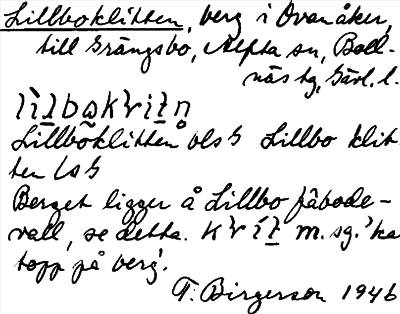 Lillboklitten, berg i Ovanåker,
till Grängsbo, Alfta sn, Boll-
näs tg, Gävl. l.
Lillboklitten OLS G Lillbo klit-
ten LS G
Berget ligger å Lillbo fäbode-
vall, se detta. m. sg. 'ka
topp på berg'.
T. Birgerson 1946